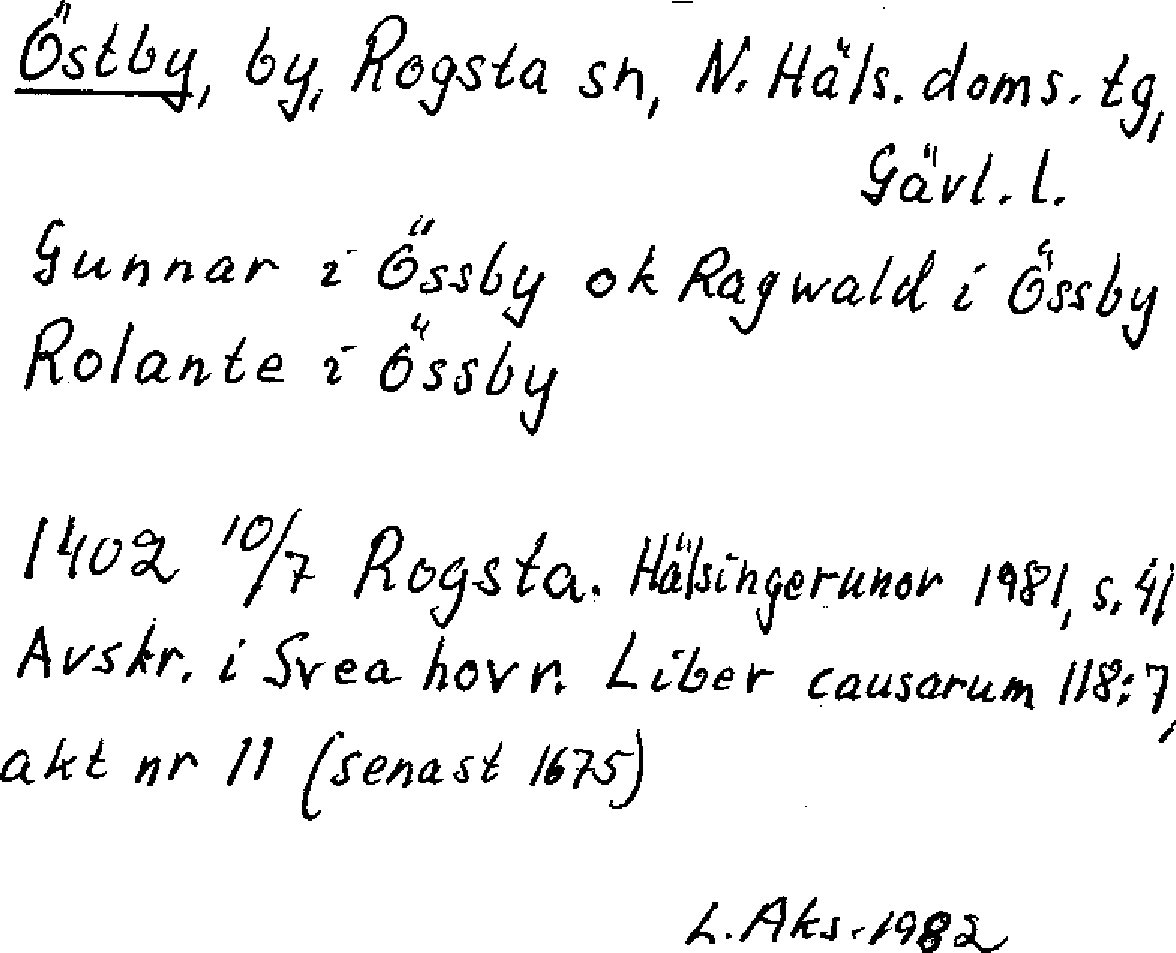 Östby, by, Rogsta sn, N. Häls. doms. tg,
Gävl. l.
Gunnar i Össby ok Ragwald i Össby
Rolante i Össby
1402 10/7 Rogsta. Hälsingerunor 1981, s. 41
Avskr. i Svea hovr. Liber causarum 118:7,
akt nr 11 (senast 1675)
L. Aks. 1982